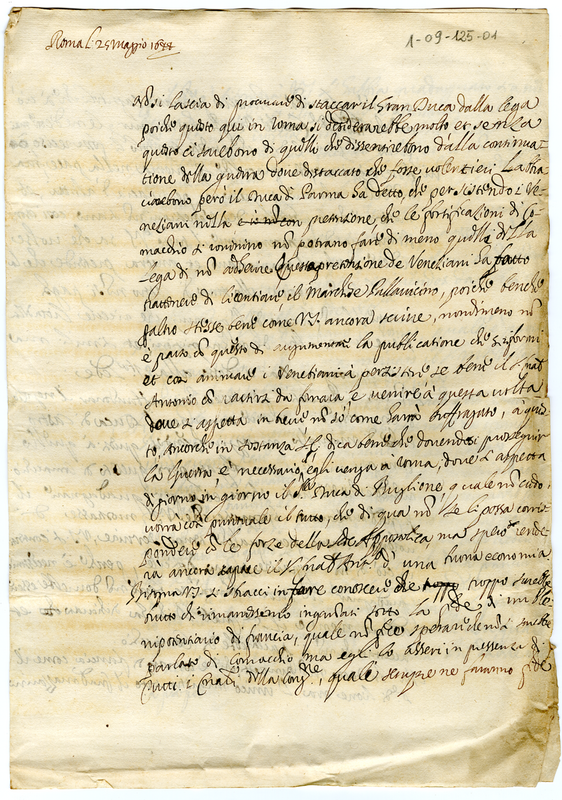 Roma li 25 Maggio 1644
1-09-125-01
si lascia di procurare di staccar il Gran Duca dalla lega
poiche questo qui in roma si molto et senza
questo ci sarebono di quelli che dissentirebono dalla continua
tione della guerra dove distaccato che forse volentieri l'abra
ciarebono però il Duca di Parma ha detto, che persistendo i Ve
netiani nella pretensione che le fortificationi di Co
macchio si rovinino nō potrano fare di meno quelli della
lega di nō aderire Questa pretensione de Venetiani ha fatto
trattenere di licentiare il Marchese Pallavicino, poiche benche
stesse bene come V.S. ancora scrive, nondimeno nō
è parso cō questo di augumentar la publicatione che si riformi
et cosi animare i Venetiani à persistere se bene il S.
Antonio cō da feraia e venire à questa volta
dove s'aspetta in breve nō sò come sarà suffragato, a
to, ancorche in sostanza dica bene che dovendo proseguir
la guerra è necessario, egli venga à roma, dove s'aspetta
di giorno in giorno il Duca di Buglione, quale nō credo
vorrà cosi puntuale il tutto, che di qua nō se li possa corris
pondere cō le forze della Apostolica ma spero rende
rà ancora capace il d'una buona economia
V.S. si sbracci in fare conoscere che troppo sarebbe
brutto che rimanessemo ingannati sotto la fede d'un Ple
nipotentiario di francia, quale nō
parlato di Comacchio ma egli lo asserì in presenza di
tutti i della , quale sempre ne faranno fede